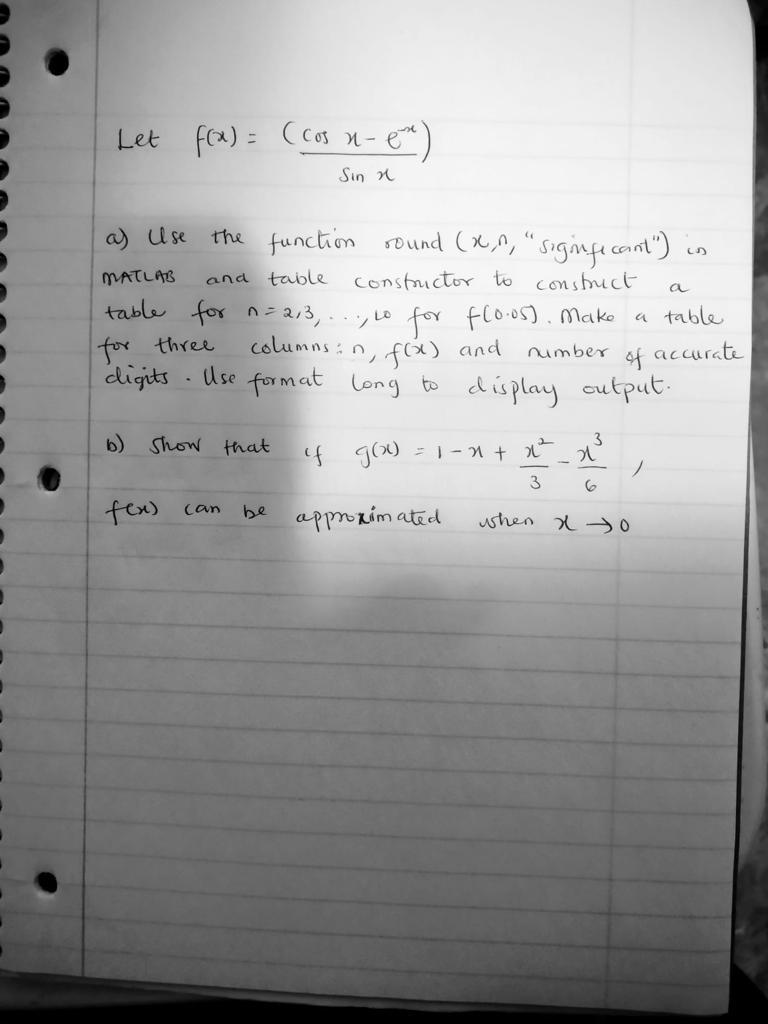 Let f(x) = (cos x - e^-x)
sin x
a) Use the function round (x,n, "significant") in
MATLAB and table constructor to construct a
table for n = 2,3, ..., 10 for f(0.05). Make a table
for three columns: n, f(x) and number of accurate
digits. Use format long to display output.
b) Show that if g(x) = 1 - x + x^2/3 - x^3/6 ,
f(x) can be approximated when x → 0